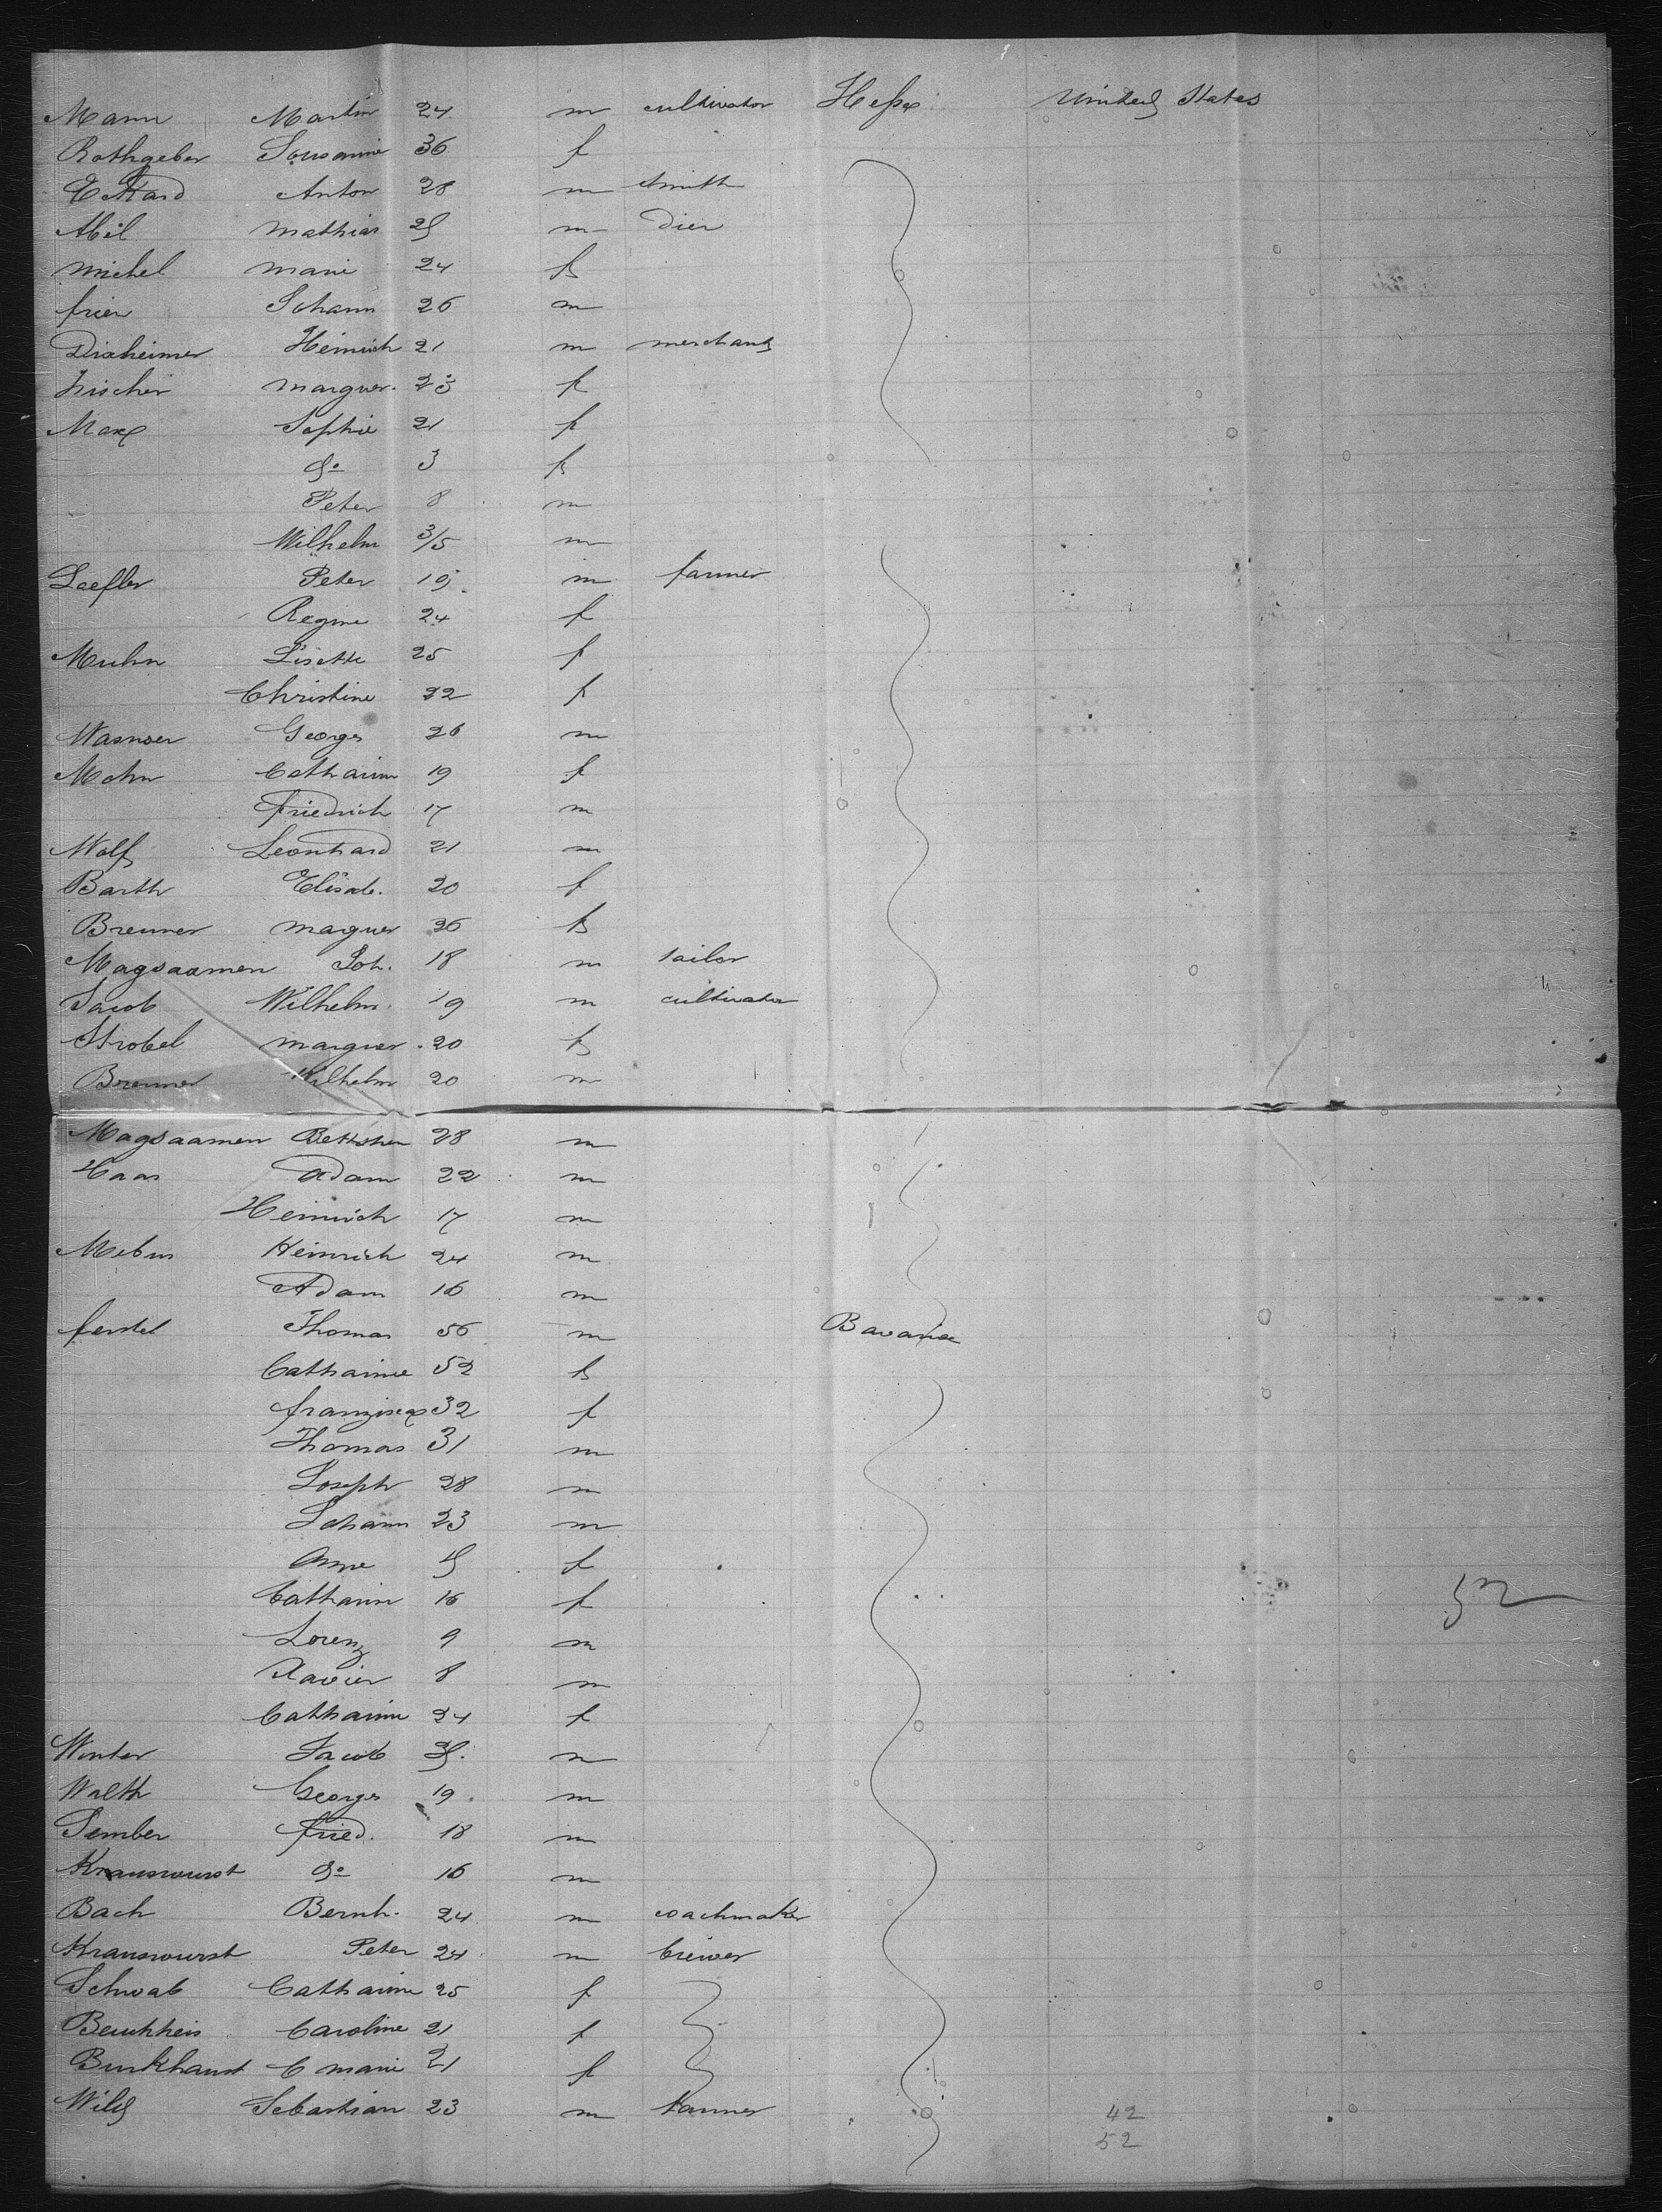 Mann Martin 24 m cultivator Hesse United States
Rothgeber Sousanne 36 f
Ekkard Anton 28 m smith
Abel Mathias 25 m dier
Michel Marie 24 f
frier Johann 26 m
Dixheimer Heinrich 21 m merchant
fischer Marguer. 23 f
Max Sophie 21 f
do 3 f
Peter 8 m
Wilhelm 3/5 m
Loefler Peter 19 m farmer
Regine 24 f
Muhn Lisette 25 f
Christine 22 f
Wasnoer Georges 26 m
Mohn Catharine 19 f
Friedrich 17 m
Wolf Leonhard 21 m
Barth Elisab. 20 f
Brenner Marguer 26 f
Magsaamen Joh. 18 m tailor
Jacob Wilhelm 19 m cultivator
Strobel Marguer. 20 f
Brenner Wilhelm 20 m
Magsaamen 28 m
Haas Adam 22 m
Heinrich 17 m
Mebus Heinrich 24 m
Adam 16 m
ferstel Thomas 56 m Bavaria
Catharine 52 f
Franzisca 32 f
Thomas 31 m
Joseph 28 m
Johann 23 m
Anne f
Catharine 16 f
Lorenz 9 m
Xavier 8 m
Catharine 24 f
Winter Jacob m
Walth Georges 19 m
Sember fried. 18 m
Krauswurst do 16 m
Bach Bernh. 24 m coachmaker
Krauswurst Peter 24 m brewer
Schwab Catharine 25 f
Caroline 21 f
Burkhaust C Marie 21 f
Wild Sebastian 23 m tanner
52
42
52